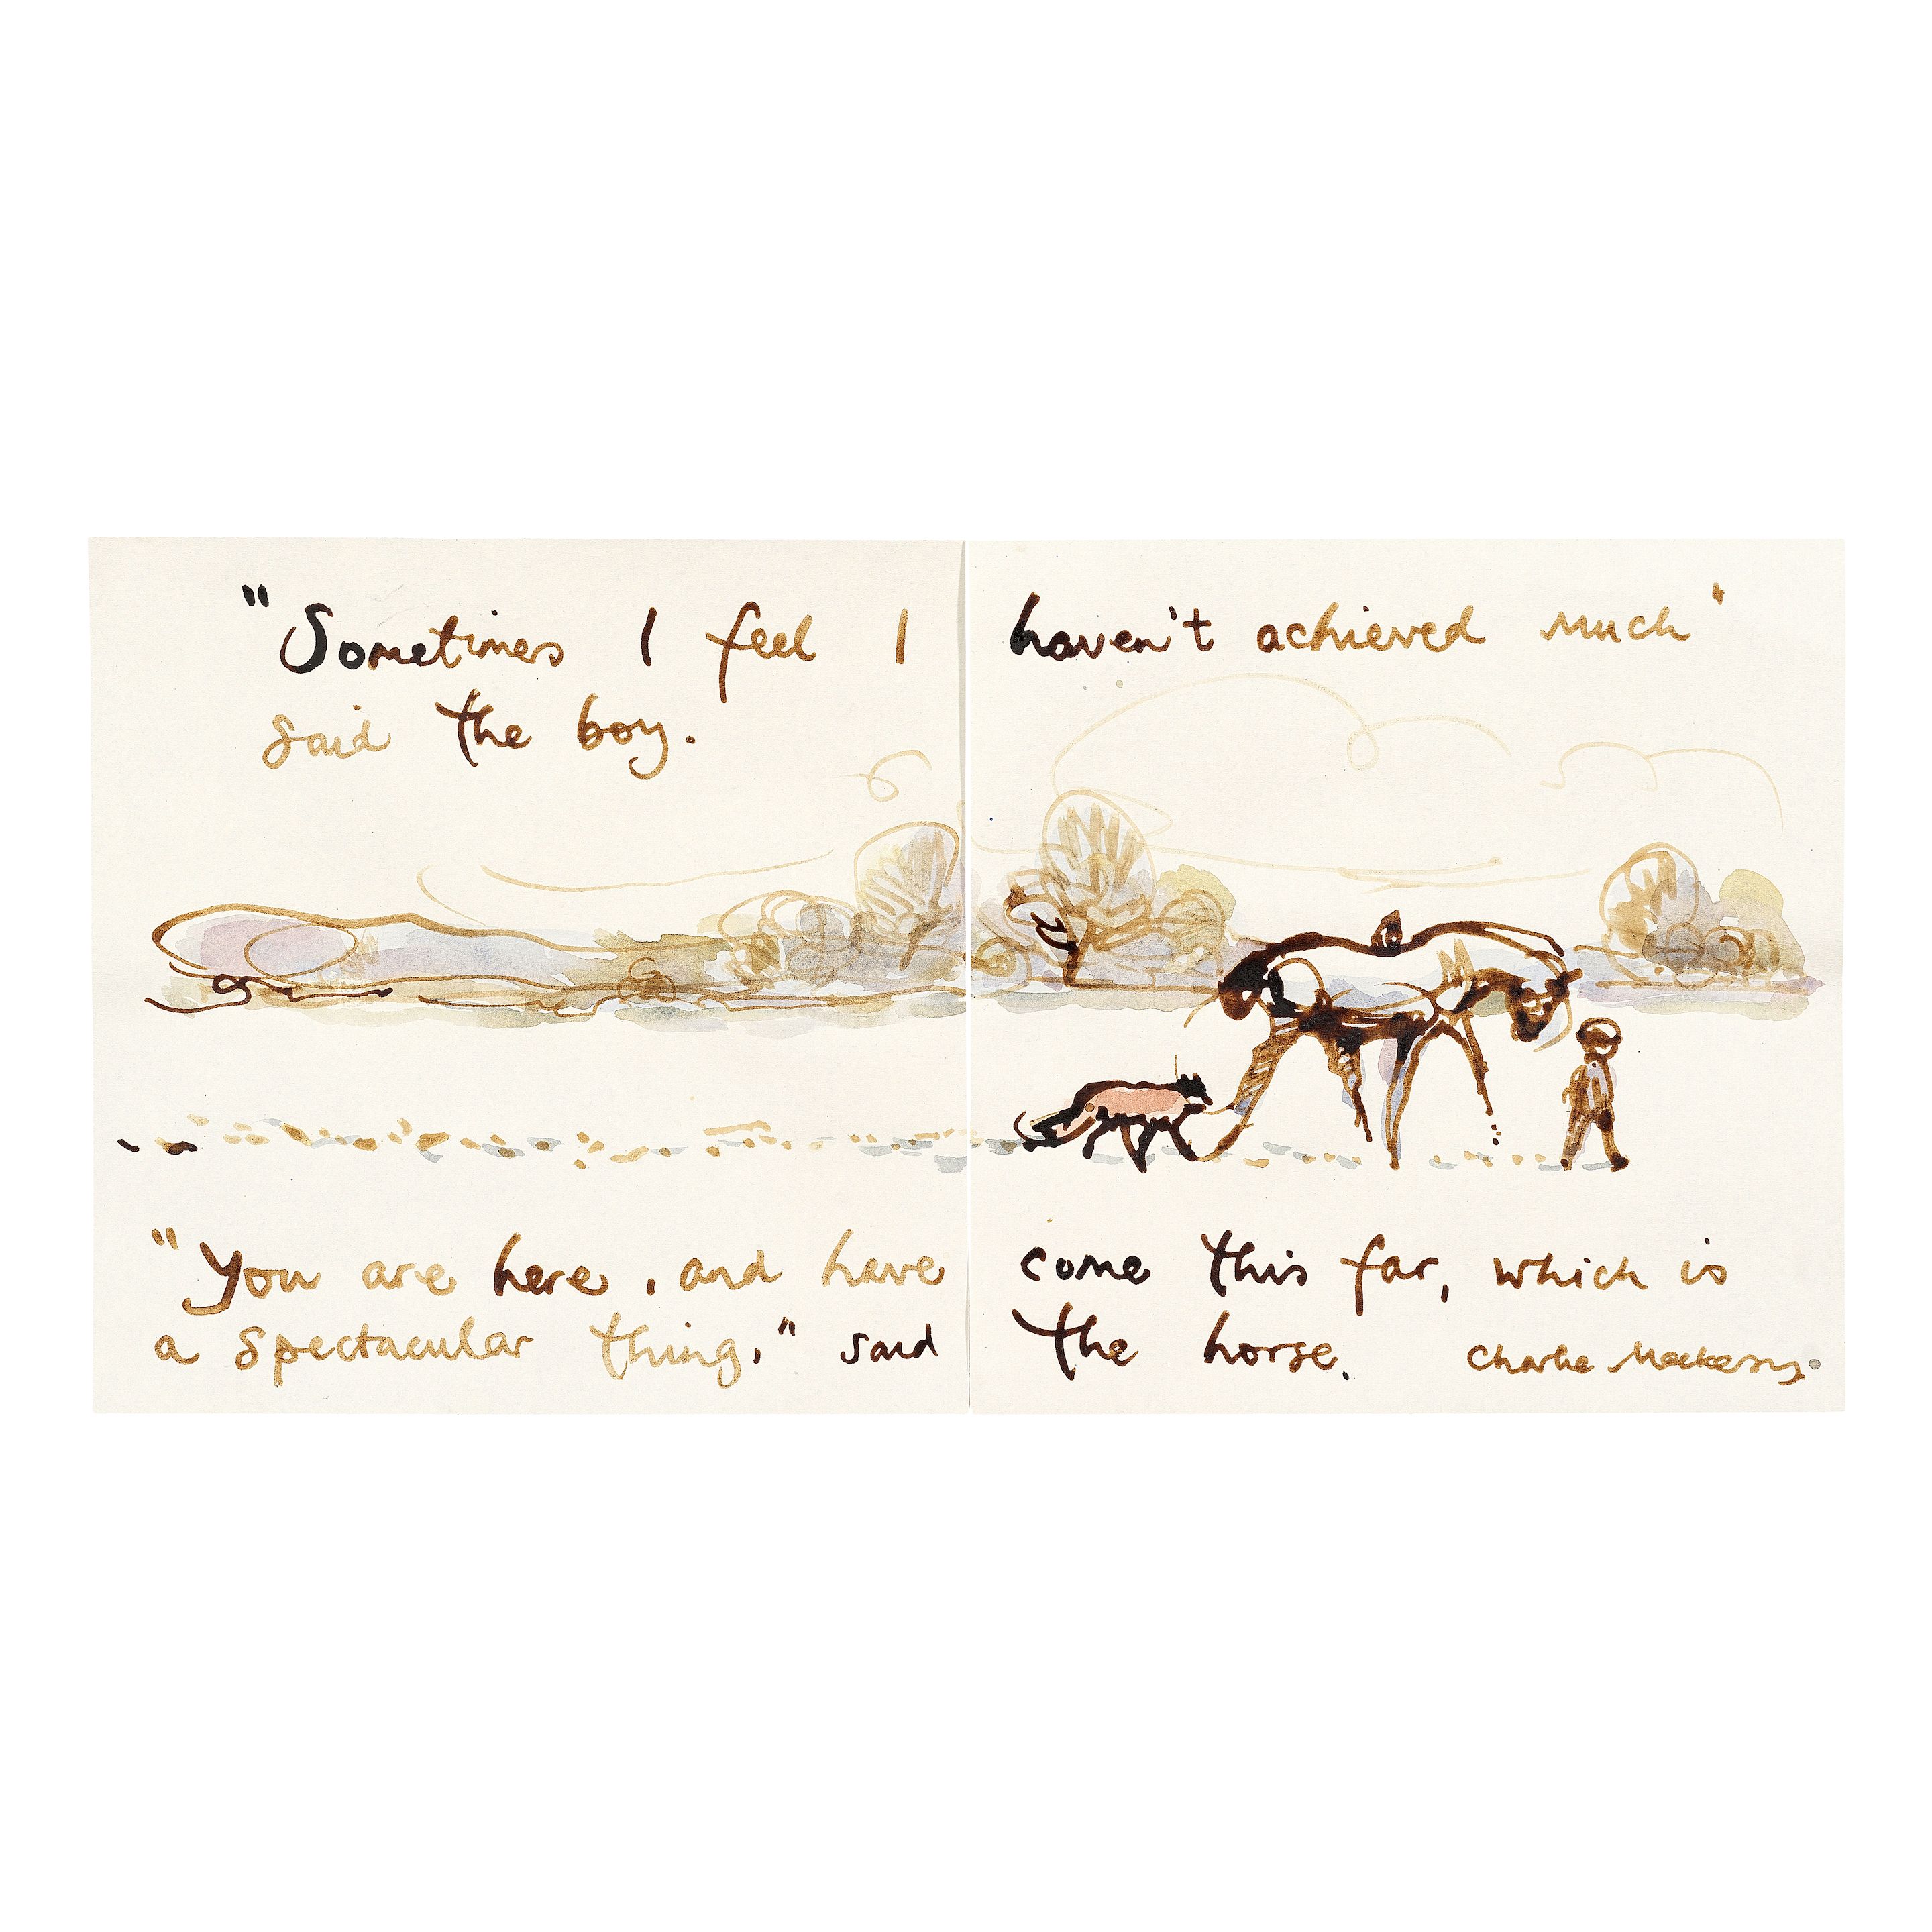 "Sometimes I feel I haven't achieved much"
said the boy.
"You are here, and have come this far, which is
a spectacular thing," said the horse.
Charlie Mackesy.